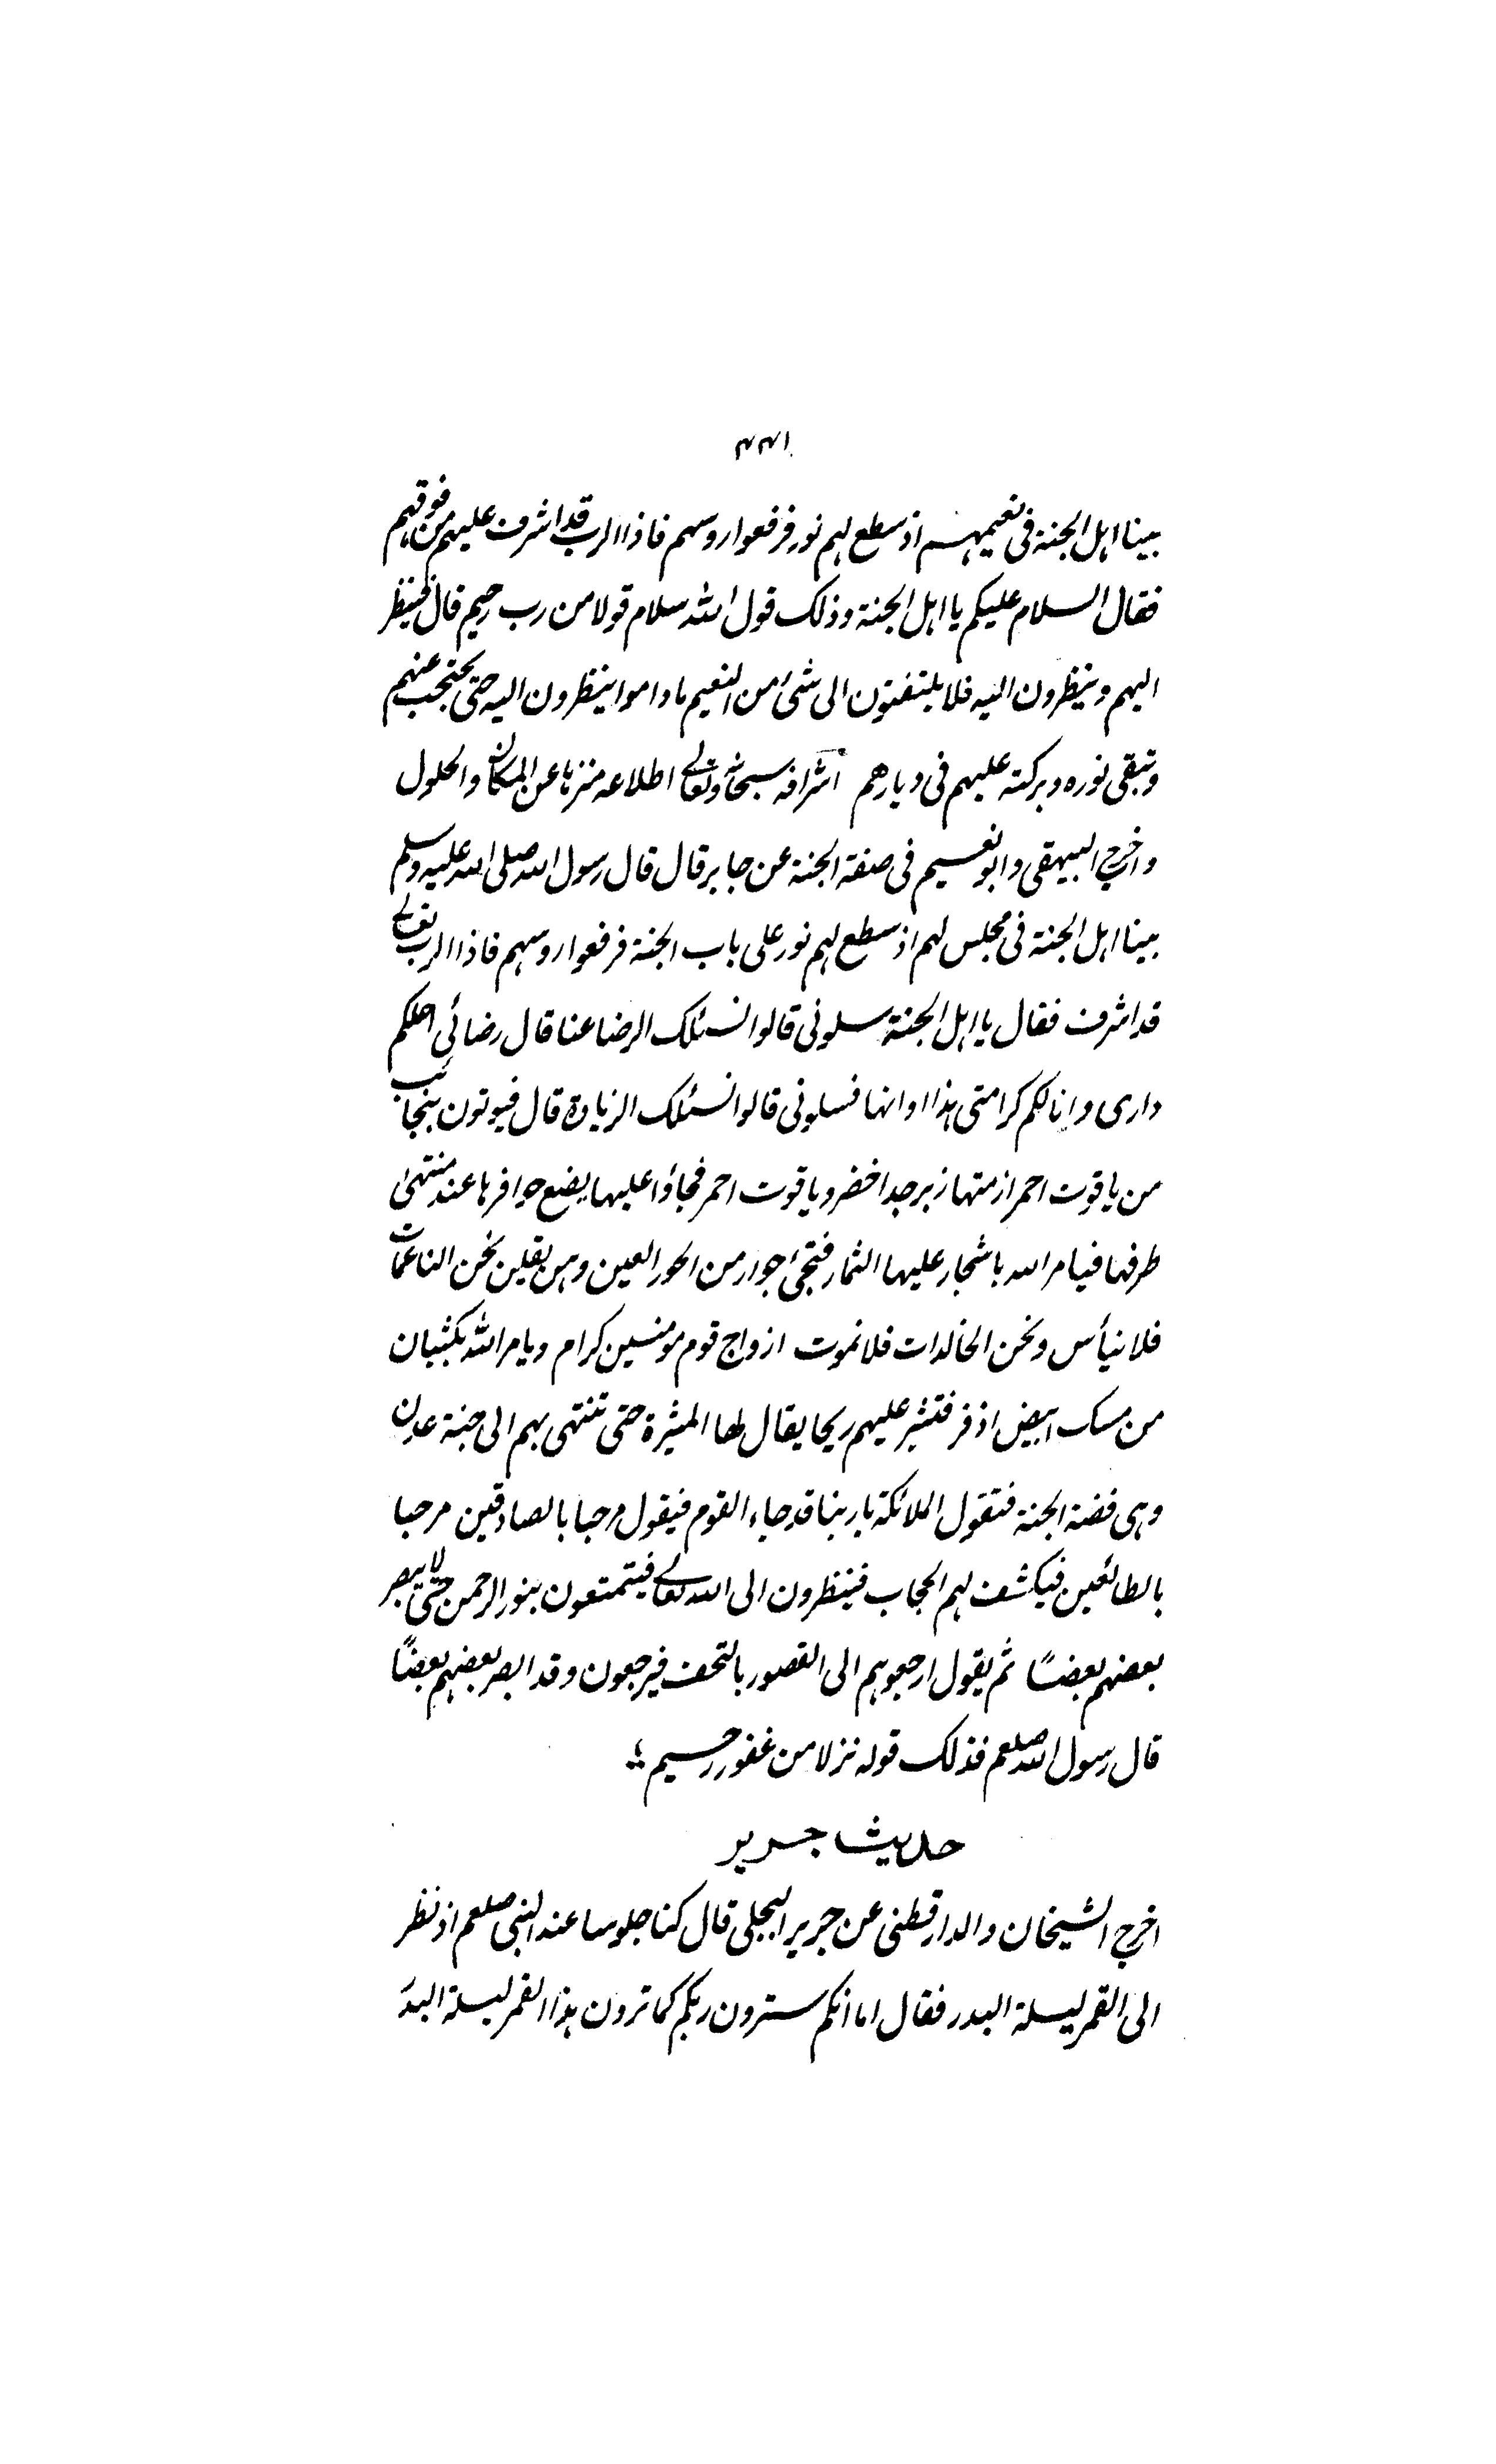 ۴۴۱
بينا اهل الجنة فى نعيمهم اذ سطع لهم نور فرفعوا روسهم فاذا الرب قد اشرف عليهم من فوقهم
فقال السلام عليكم يا اهل الجنة وذلك قول الله سلام قولا من رب رحيم قال فينظر
اليهم وينظرون اليه فلا يلتفتون الى شئ من النعيم ما داموا ينظرون اليه حتى يحتجب عنهم
وتبقى نوره وبركته عليهم فى ديارهم اشرافه سبحانه وتعالى اطلاعه منزها عن المكان والحلول
واخرج البيهقى وابو نعسيم فى صفة الجنة عن جابر قال قال رسول الله صلى الله عليه وسلم
بينا اهل الجنة فى مجلس لهم اذ سطع لهم نور على باب الجنة فرفعوا روسهم فاذا الرب تعالى
قد اشرف فقال يا اهل الجنة سلونى قالوا نسئلك الرضا عنا قال رضائى احلكم
دارى وانالكم كرامتى هذا اوانها فسلونى قالوا نسئلك الزيادة قال فيوتون بنجائب
من ياقوت احمر ازمتها زبرجد اخضر وياقوت احمر فجاؤا عليها يضع حوافرها عند منتهى
طرفها فيامر الله باشجار عليها الثمار فتجئ جوار من الحور العين وهن يقلين نحن الناعمات
فلا نيأس ونحن الخالدات فلا نموت ازواج قوم مومنسين كرام ويامر الله بكثبان
من مسك ابيض اذفر فتثير عليهم ريحا يقال لها المثيرة حتى تنتهى بهم الى جنة عدن
وهى فضة الجنة فتقول الملائكة يا ربنا قد جاء القوم فيقول مرحبا بالصادقين مرحبا
بالطائعين فيكشف لهم الحجاب فينظرون الى الله تعالى فيتمتعون بنور الرحمن حتى لا يبصر
بعضهم بعضا ثم يقول ارجعوهم الى القصور بالتحف فيرجعون وقد ابصر بعضهم بعضًا
قال رسول الله صلعم فذلك قوله نزلا من غفور رحسيم ؛
حديث جرير
اخرج الشيخان والدارقطنى عن جرير البجلى قال كنا جلوسا عند النبى صلعم اذ نظر
الى القمر ليلة البدر فقال اما انكم سترون ربكم كما ترون هذا القمر ليلة البدر